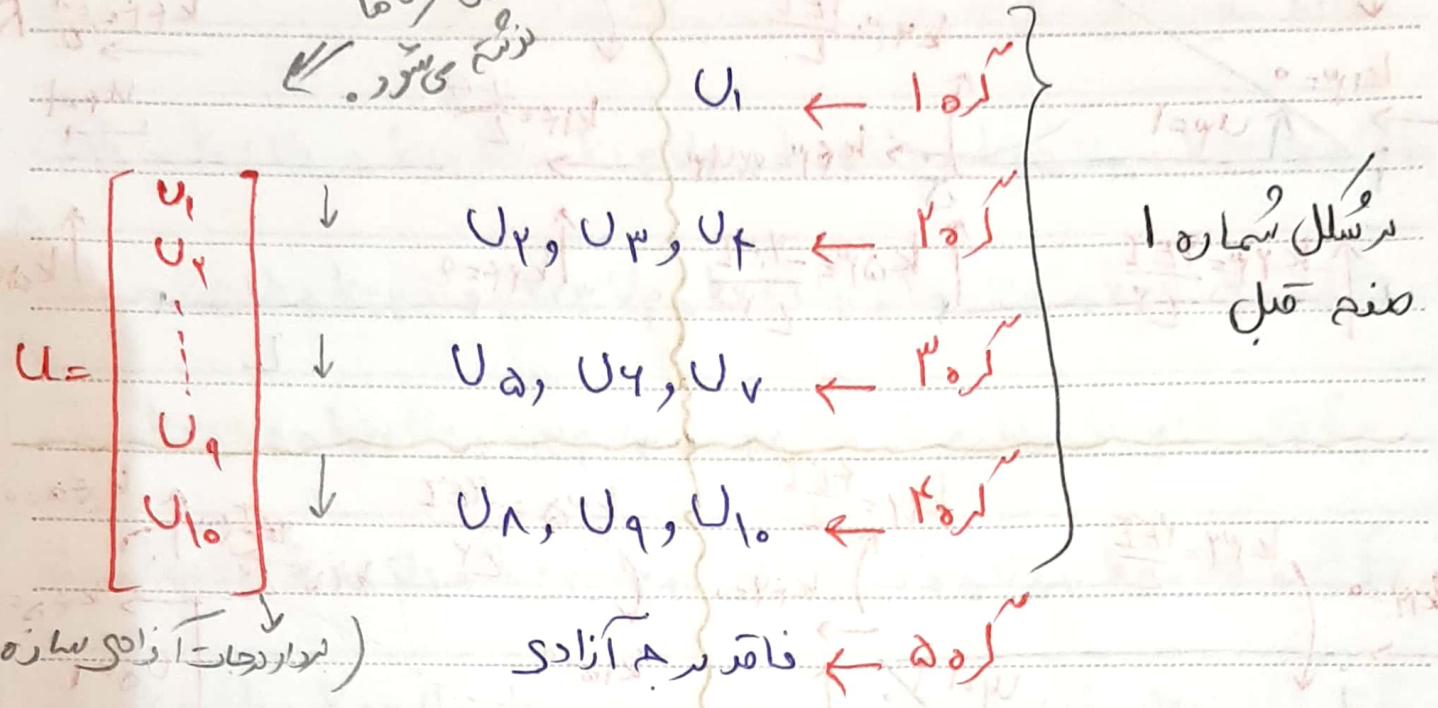 نوشته می‌شود.
گره ۱ ← U۱
گره ۲ ← U۲ و U۳ و U۴
گره ۳ ← U۵ و U۶ و U۷
گره ۴ ← U۸ و U۹ و U۱۰
گره ۵ ← فاقد درجه آزادی
در شکل شماره ۱
صفحه قبل
u=
U۱
U۲
U۹
U۱۰
(بردار درجات آزادی سازه